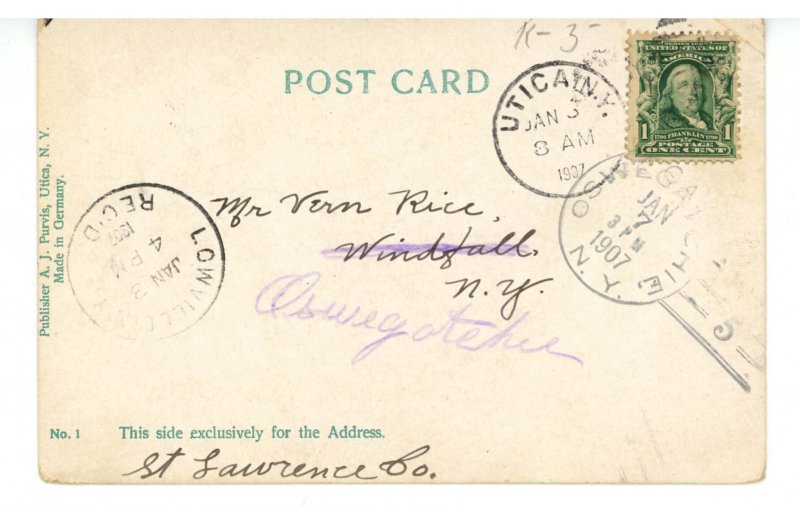 K-3-
POST CARD
UTICA N.Y.
JAN 3
8 AM
1907
SERIES 1902
UNITED STATES OF
AMERICA
1 1706 FRANKLIN 1790 1
POSTAGE
ONE CENT
OSWEGATCHIE, N.Y.
JAN 7
3 PM
1907
5
LOWVILLE
REC'D
JAN 3
4 PM
1907
Mr Vern Rice,
Windfall,
N.Y.
Oswegatchie
Publisher A. J. Purvis, Utica, N. Y.
Made in Germany.
No. 1 This side exclusively for the Address.
St Lawrence Co.